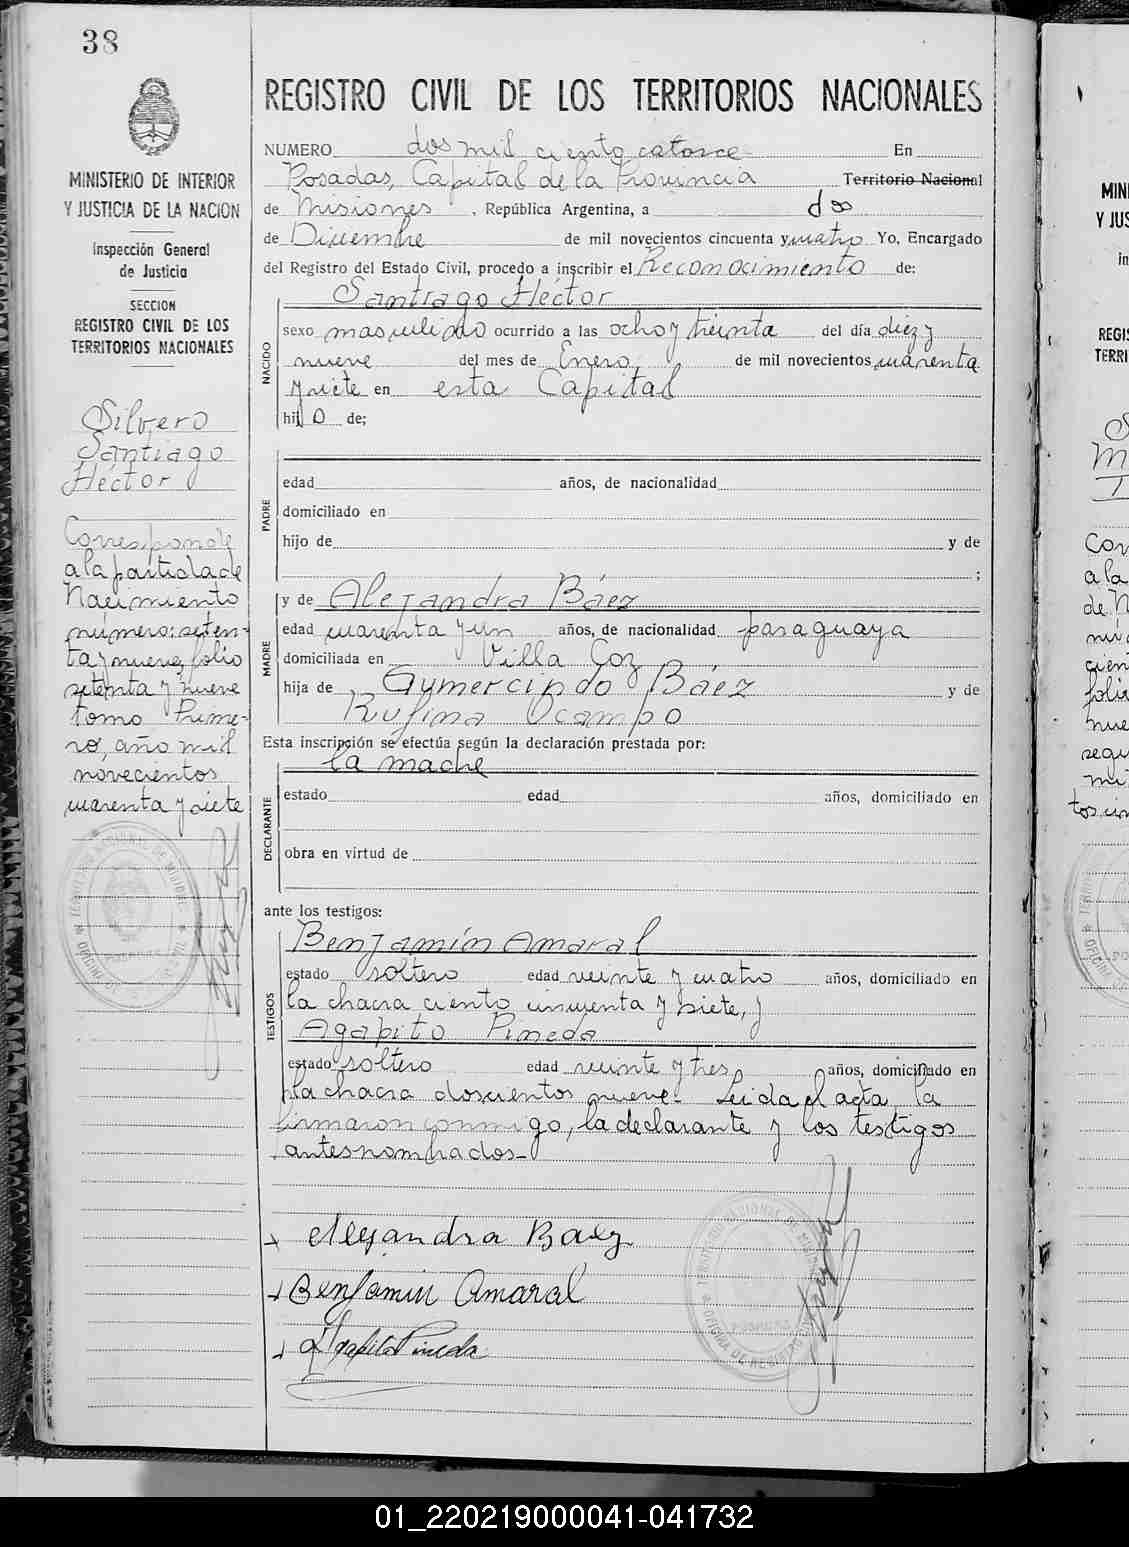 38
MINISTERIO DE INTERIOR
Y JUSTICIA DE LA NACION
Inspección General
de Justicia
SECCION
REGISTRO CIVIL DE LOS
TERRITORIOS NACIONALES
Silvero
Santiago
Héctor
Corresponde
a la partida de
Nacimiento
número: seten-
ta y nueve, folio
setenta y nueve
tomo Prime-
ro, año mil
novecientos
cuarenta y siete
REGISTRO CIVIL DE LOS TERRITORIOS NACIONALES
NUMERO dos mil ciento catorce En
Posadas, Capital de la Provincia Territorio Nacional
de Misiones, República Argentina, a dos
de Diciembre de mil novecientos cincuenta y cuatro Yo, Encargado
del Registro del Estado Civil, procedo a inscribir el Reconocimiento de:
Santiago Héctor
NACIDO
sexo masculino ocurrido a las ocho y treinta del día diez y
nueve del mes de Enero de mil novecientos cuarenta
y siete en esta Capital
hijo de;
PADRE
edad años, de nacionalidad
domiciliado en
hijo de y de
;
MADRE
y de Alejandra Báez
edad cuarenta y un años, de nacionalidad paraguaya
domiciliada en Villa Coz
hija de Gumercindo Báez y de
Rufina Ocampo
Esta inscripción se efectúa según la declaración prestada por:
la madre
DECLARANTE
estado edad años, domiciliado en
obra en virtud de
ante los testigos:
TESTIGOS
Benjamín Amaral
estado soltero edad veinte y cuatro años, domiciliado en
la chacra ciento cincuenta y siete, y
Agapito Pineda
estado soltero edad veinte y tres años, domiciliado en
la chacra doscientos nueve.- Leida el acta, la
firmaron conmigo, la declarante y los testigos
antes nombrados.-
Alejandra Baez
Benjamin Amaral
Agapito Pineda
01_220219000041-041732